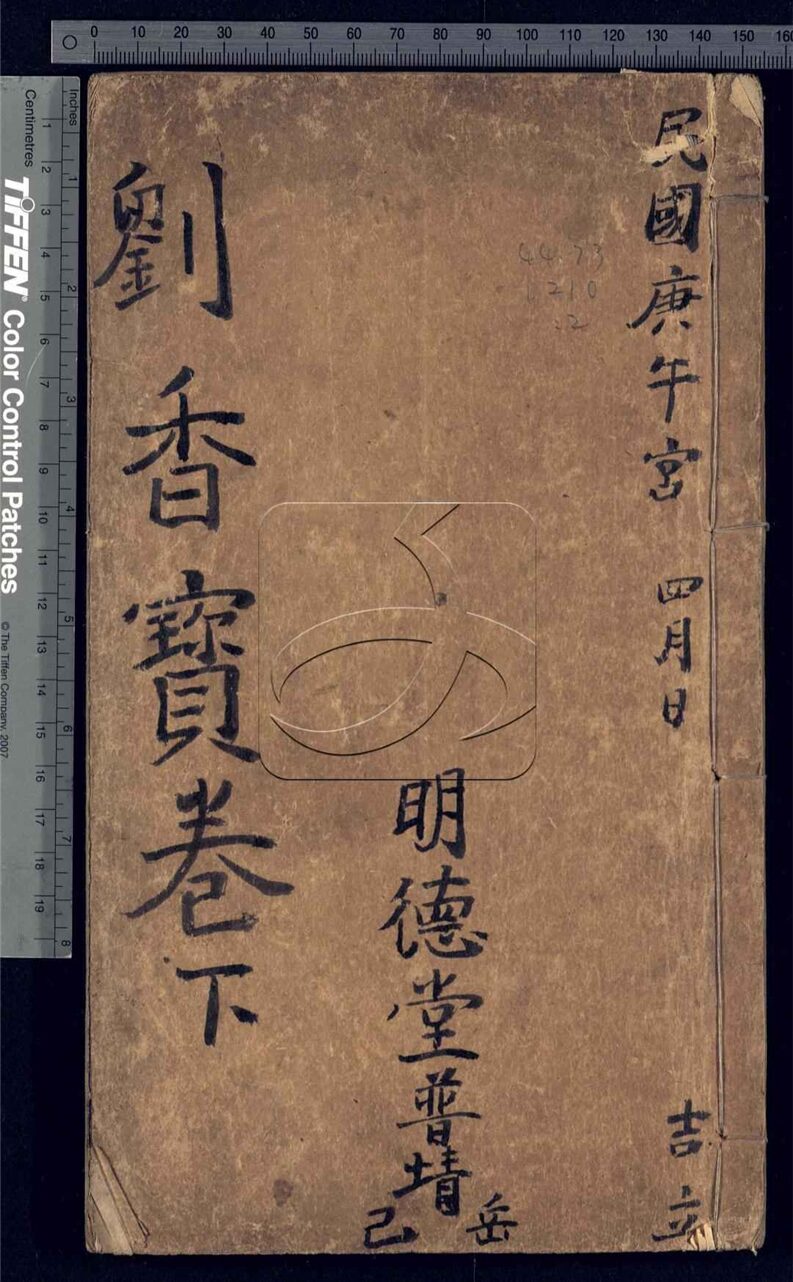 民國庚午宮 四月日 吉立
明德堂普堉
岳 己
劉香寶卷下
44.73
1210
:2
0 10 20 30 40 50 60 70 80 90 100 110 120 130 140 150 160
Inches 1 2 3 4 5 6 7 8
Centimetres 1 2 3 4 5 6 7 8 9 10 11 12 13 14 15 16 17 18 19
TIFFEN® Color Control Patches © The Tiffen Company, 2007